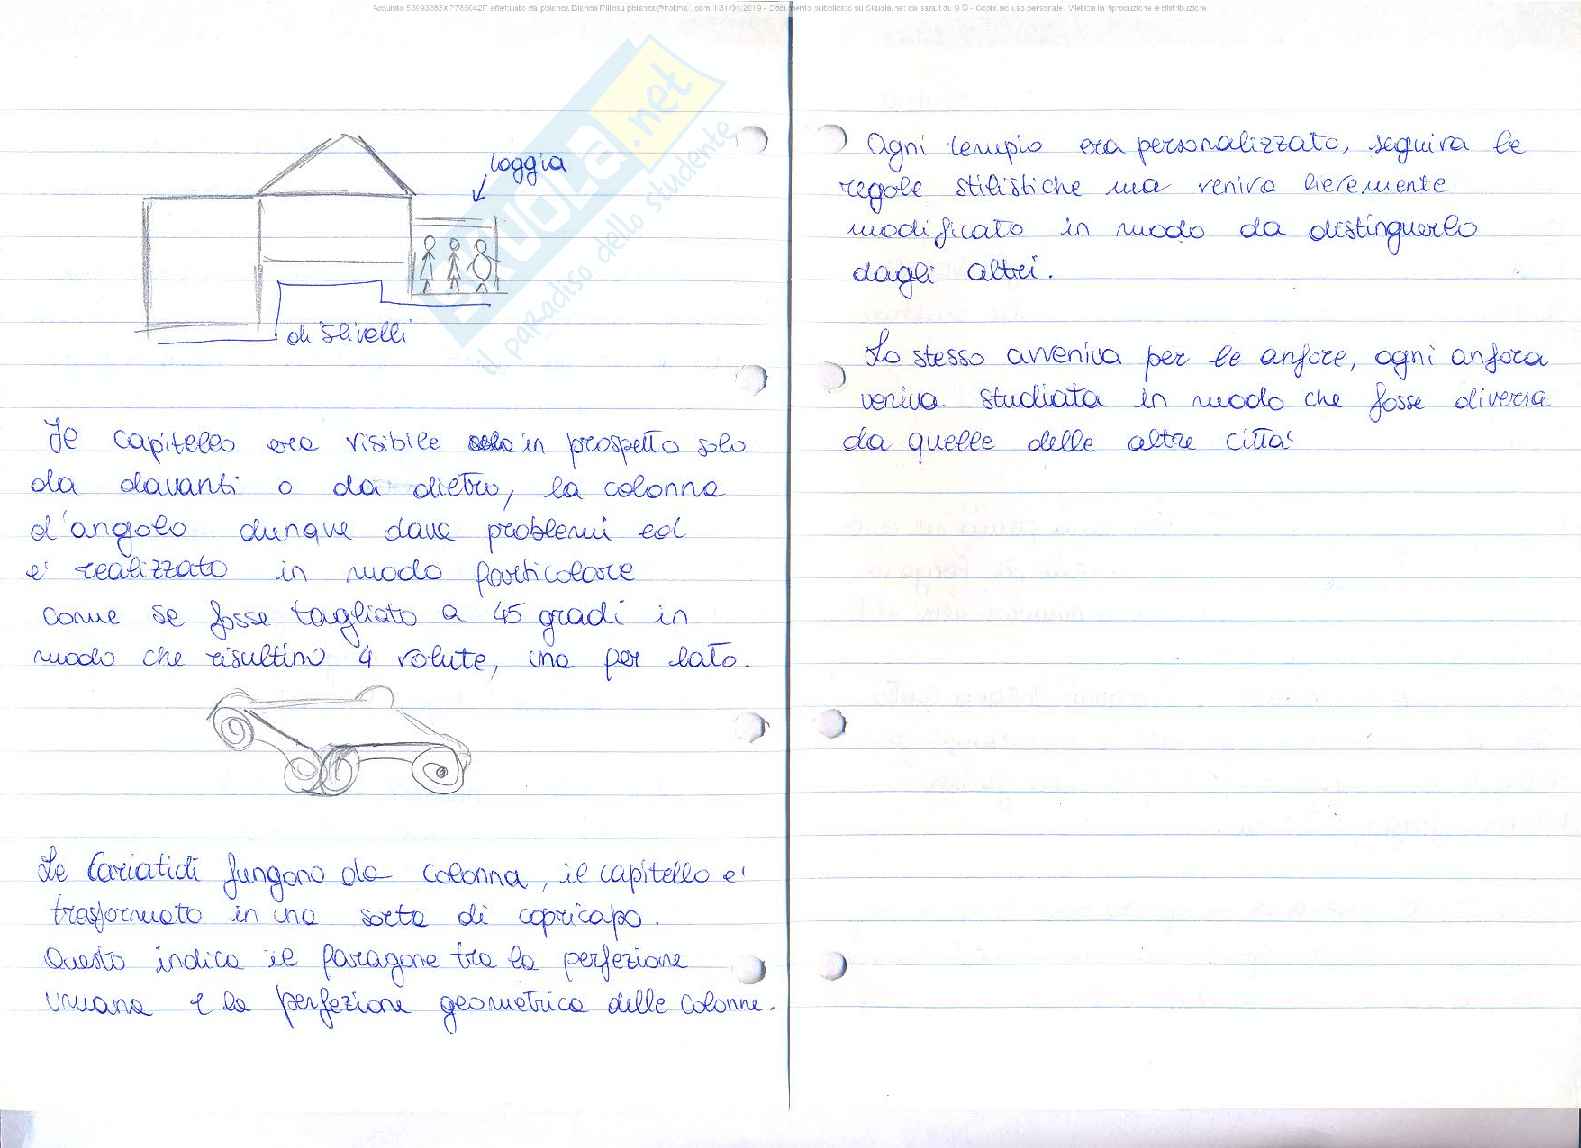 SKUOLA.net
il paradiso dello studente
loggia
dislivelli
Il capitello era visibile in prospetto solo
da davanti o da dietro, la colonna
d'angolo dunque dava problemi ed
e' realizzato in modo particolare
come se fosse tagliato a 45 gradi in
modo che risultino 4 volute, una per lato.
Le Cariatidi fungono da colonna, il capitello e'
trasformato in una sorta di copricapo.
Questo indica il paragone tra la perfezione
umana e la perfezione geometrica delle colonne.
Ogni tempio era personalizzato, seguiva le
regole stilistiche ma veniva lievemente
modificato in modo da distinguerlo
dagli altri.
Lo stesso avveniva per le anfore, ogni anfora
veniva studiata in modo che fosse diversa
da quelle delle altre citta'